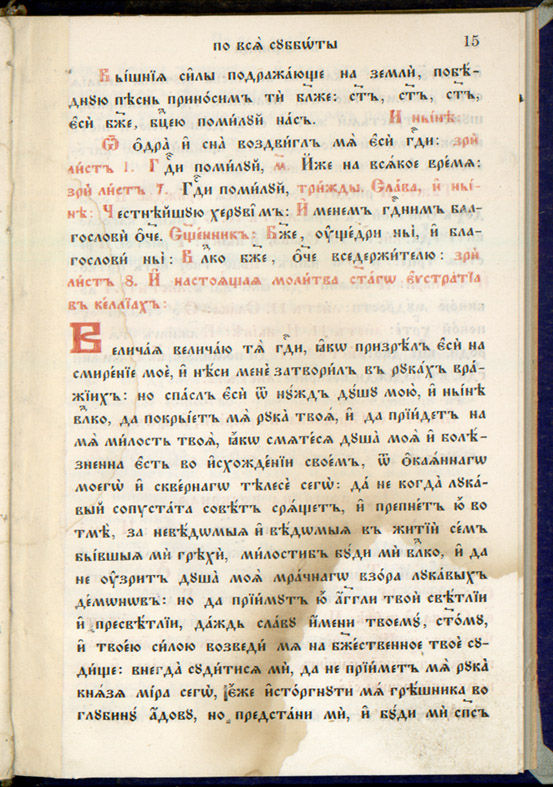 по всѧ̀ сꙋббѡ́ты 15
Вы́шнїѧ си̑лы подража́юще на землѝ, побѣ́-
днꙋю пѣ́снь прино́симъ тѝ бл҃же: ст҃ъ, ст҃ъ, ст҃ъ,
є҆сѝ бж҃е, бц҃ею поми́лꙋй на́съ. И҆ ны́нѣ:
Ѿ ѻ҆дра̀ и҆ сна̀ воздви́глъ мѧ̀ є҆сѝ гдⷭ҇и: зрѝ
ли́стъ 1. Гдⷭ҇и поми́лꙋй, м҃. И҆́же на всѧ́кое вре́мѧ:
зрѝ ли́стъ 7. Гдⷭ҇и поми́лꙋй, три́жды. Сла́ва, и҆ ны́-
нѣ: Честнѣ́йшꙋю херꙋві̑мъ: И҆́менемъ гдⷭ҇нимъ бла-
гословѝ ѻ҆́ч҃е. Сщ҃е́нникъ: Бж҃е, ᲂу҆ще́дри ны̀, и҆ бла-
гословѝ ны̀: Влⷣко бж҃е, ѻ҆́ч҃е вседержи́телю: зрѝ
ли́стъ 8. И҆ настоѧ́щаѧ моли́тва ст҃а́гѡ є҆ѵстра́тїа
въ ке́ллїахъ:
Велича́ѧ велича́ю тѧ̀ гдⷭ҇и, ꙗ҆́кѡ призрѣ́лъ є҆сѝ на
смире́нїе моѐ, и҆ нѣ́си менѐ затвори́лъ въ рꙋка́хъ вра́-
жїихъ: но спа́слъ є҆сѝ ѿ нꙋ́ждъ дꙋ́шꙋ мою̀, и҆ ны́нѣ
влⷣко, да покры́етъ мѧ̀ рꙋка̀ твоѧ̀, и҆ да прїи́детъ на
мѧ̀ ми́лость твоѧ̀, ꙗ҆́кѡ смѧте́сѧ дꙋша̀ моѧ̀ и҆ болѣ́-
зненна є҆́сть во и҆схожде́нїи свое́мъ, ѿ ѻ҆каѧ́ннагѡ
моегѡ̀ и҆ скве́рнагѡ тѣлесѐ сегѡ̀: да̀ не когда̀ лꙋка́-
вый сопꙋста́та совѣ́тъ срѧ́щетъ, и҆ препне́тъ ю҆̀ во
тмѣ̀, за невѣ́дѡмыѧ и҆ вѣ́дѡмыѧ въ житїѝ се́мъ
бы́вшыѧ мѝ грѣхѝ, ми́лостивъ бꙋ́ди мѝ влⷣко, и҆ да
не ᲂу҆́зритъ дꙋша̀ моѧ̀ мра́чнагѡ взо́ра лꙋка́выхъ
де́мѡнѡвъ: но да прїи́мꙋтъ ю҆̀ а҆́гг҃ли твоѝ свѣ́тлїи
и҆ пресвѣ́тлїи, да́ждь сла́вꙋ и҆́мени твоемꙋ̀, ст҃о́мꙋ,
и҆ твое́ю си́лою возведѝ мѧ̀ на бж҃е́ственное твоѐ сꙋ-
ди́ще: внегда̀ сꙋди́тисѧ мѝ, да не прїи́метъ мѧ̀ рꙋка̀
кнѧ́зѧ мі́ра сегѡ̀, є҆́же и҆сто́ргнꙋти мѧ̀ грѣ́шника во
глꙋбинꙋ̀ а҆́довꙋ, но предста́ни мѝ, и҆ бꙋ́ди мѝ сп҃съ